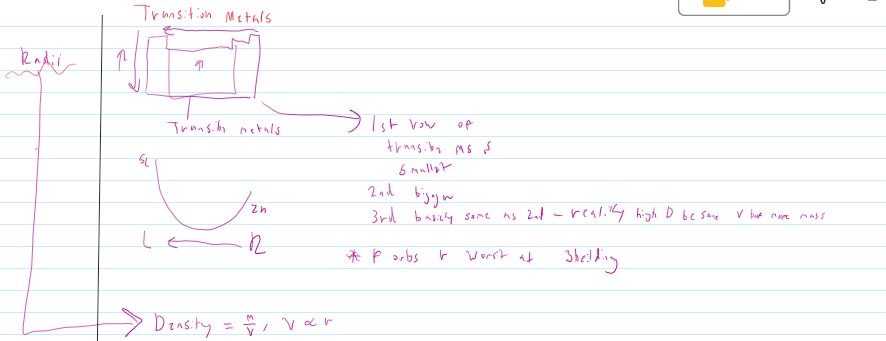 Transition Metals
Radii
n
n
Transitn metals
1st row of
transitn ms s
smallest
Sc
2nd bigger
Zn
3rd basicly same as 2nd - really high D bc same V but more mass
L ← R
* F orbs r worst at sheilding
Density = m/V, V ∝ r